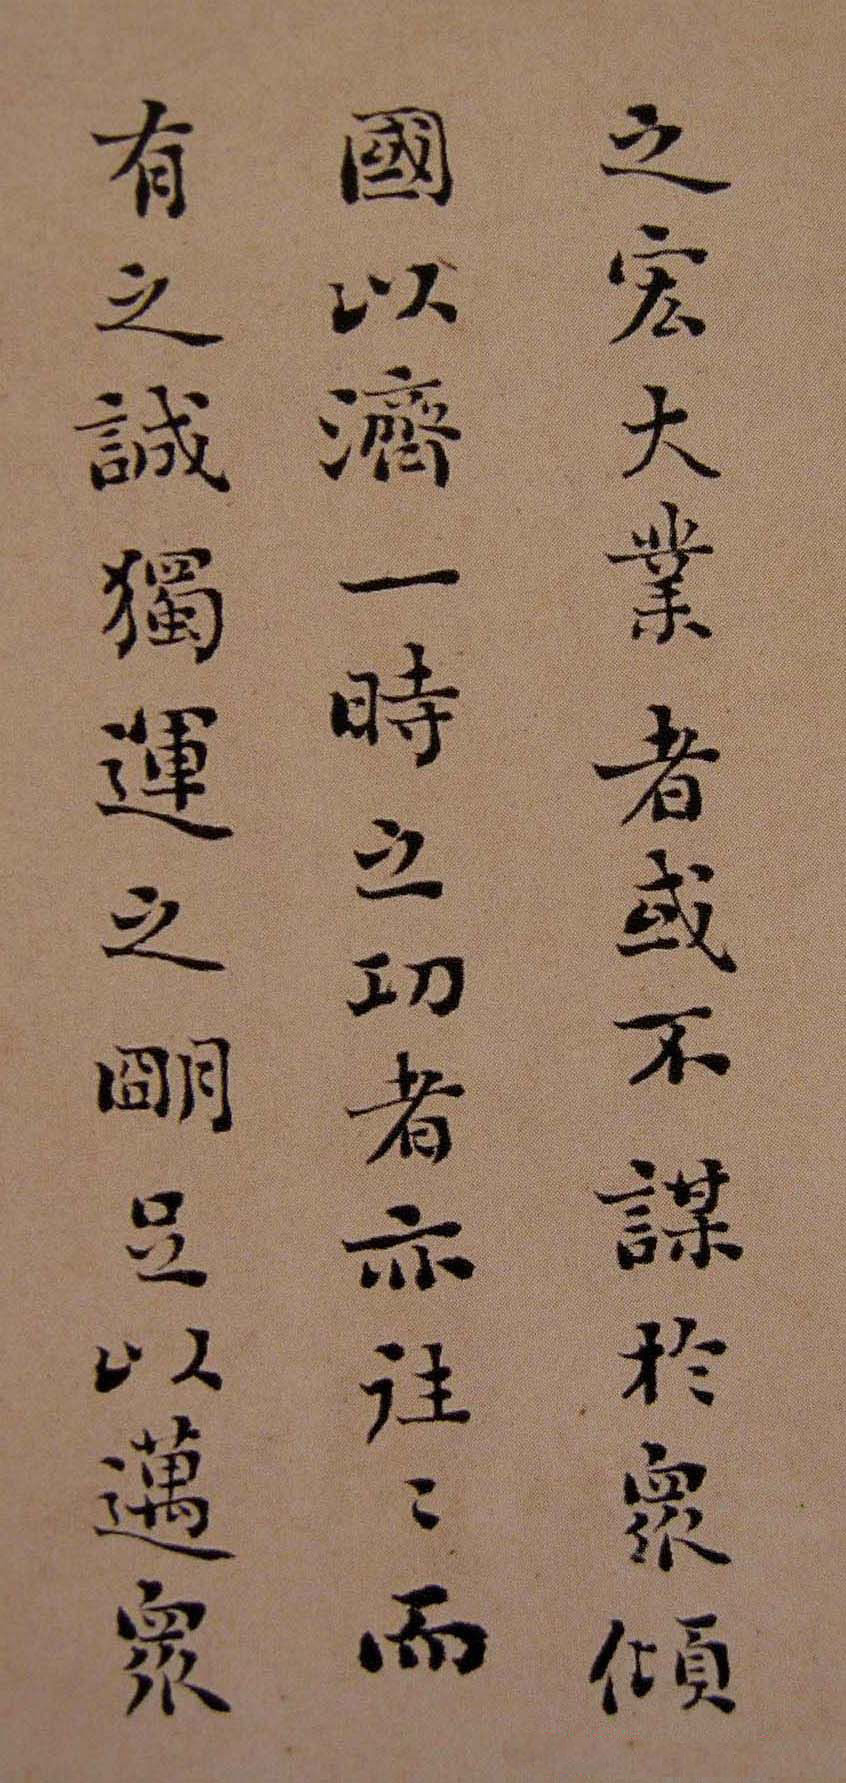 之宏大業者或不謀於眾傾
國以濟一時之功者亦往〻而
有之誠獨運之明足以邁眾